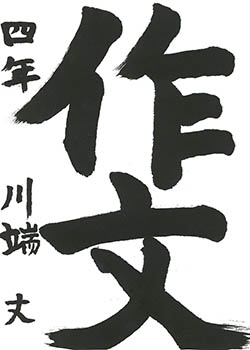 作文
四年 川端 丈